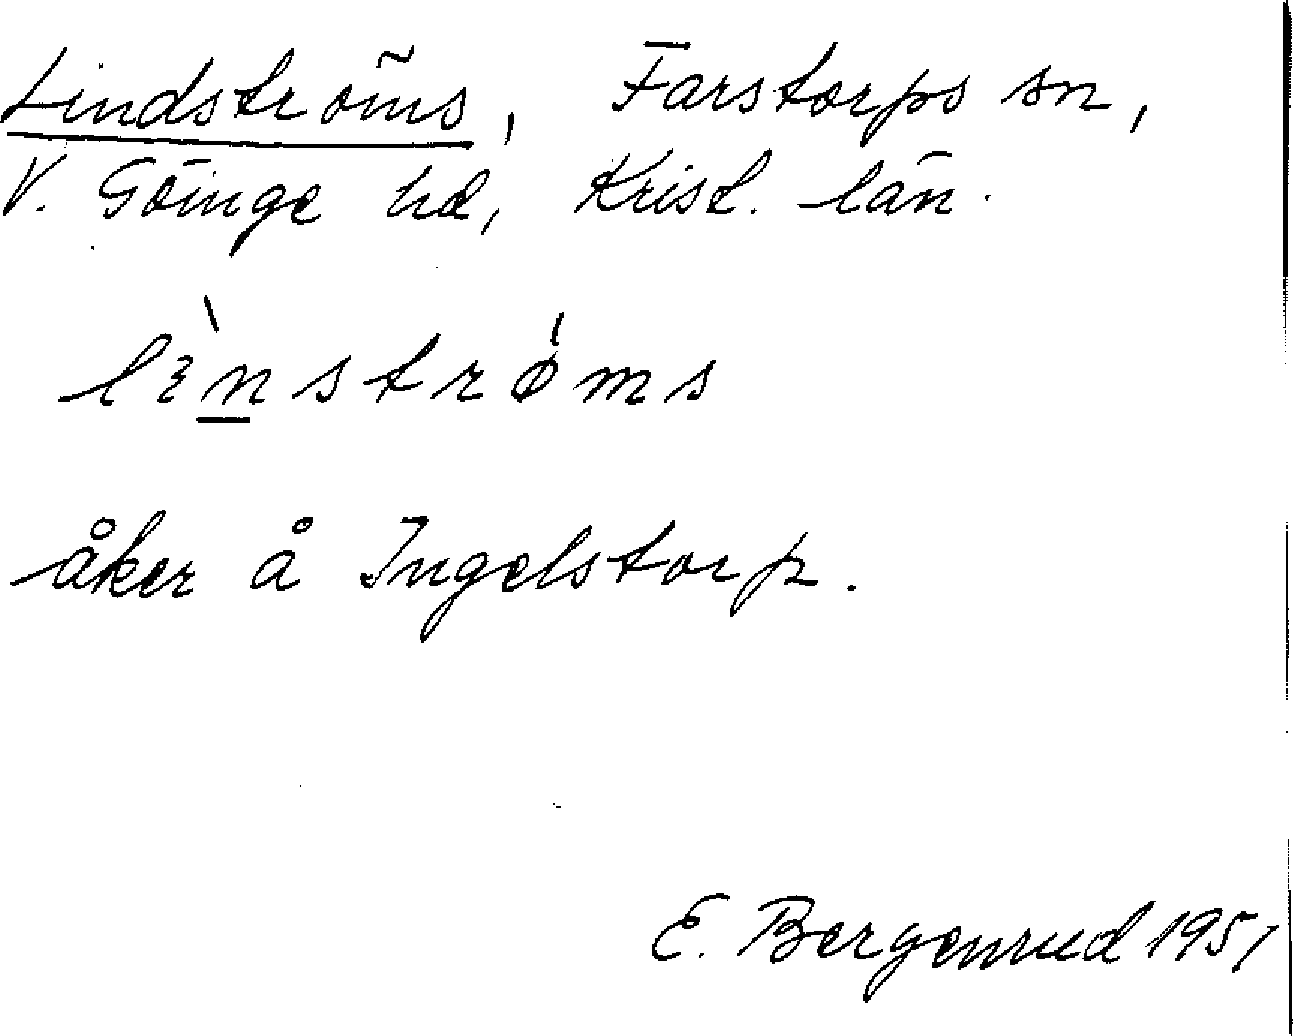 Lindströms, Farstorps sn,
V. Göinge hd, Krist. län.
lɜ̀nstrǿms
åker å Ingelstorp.
E. Bergenrud 1951